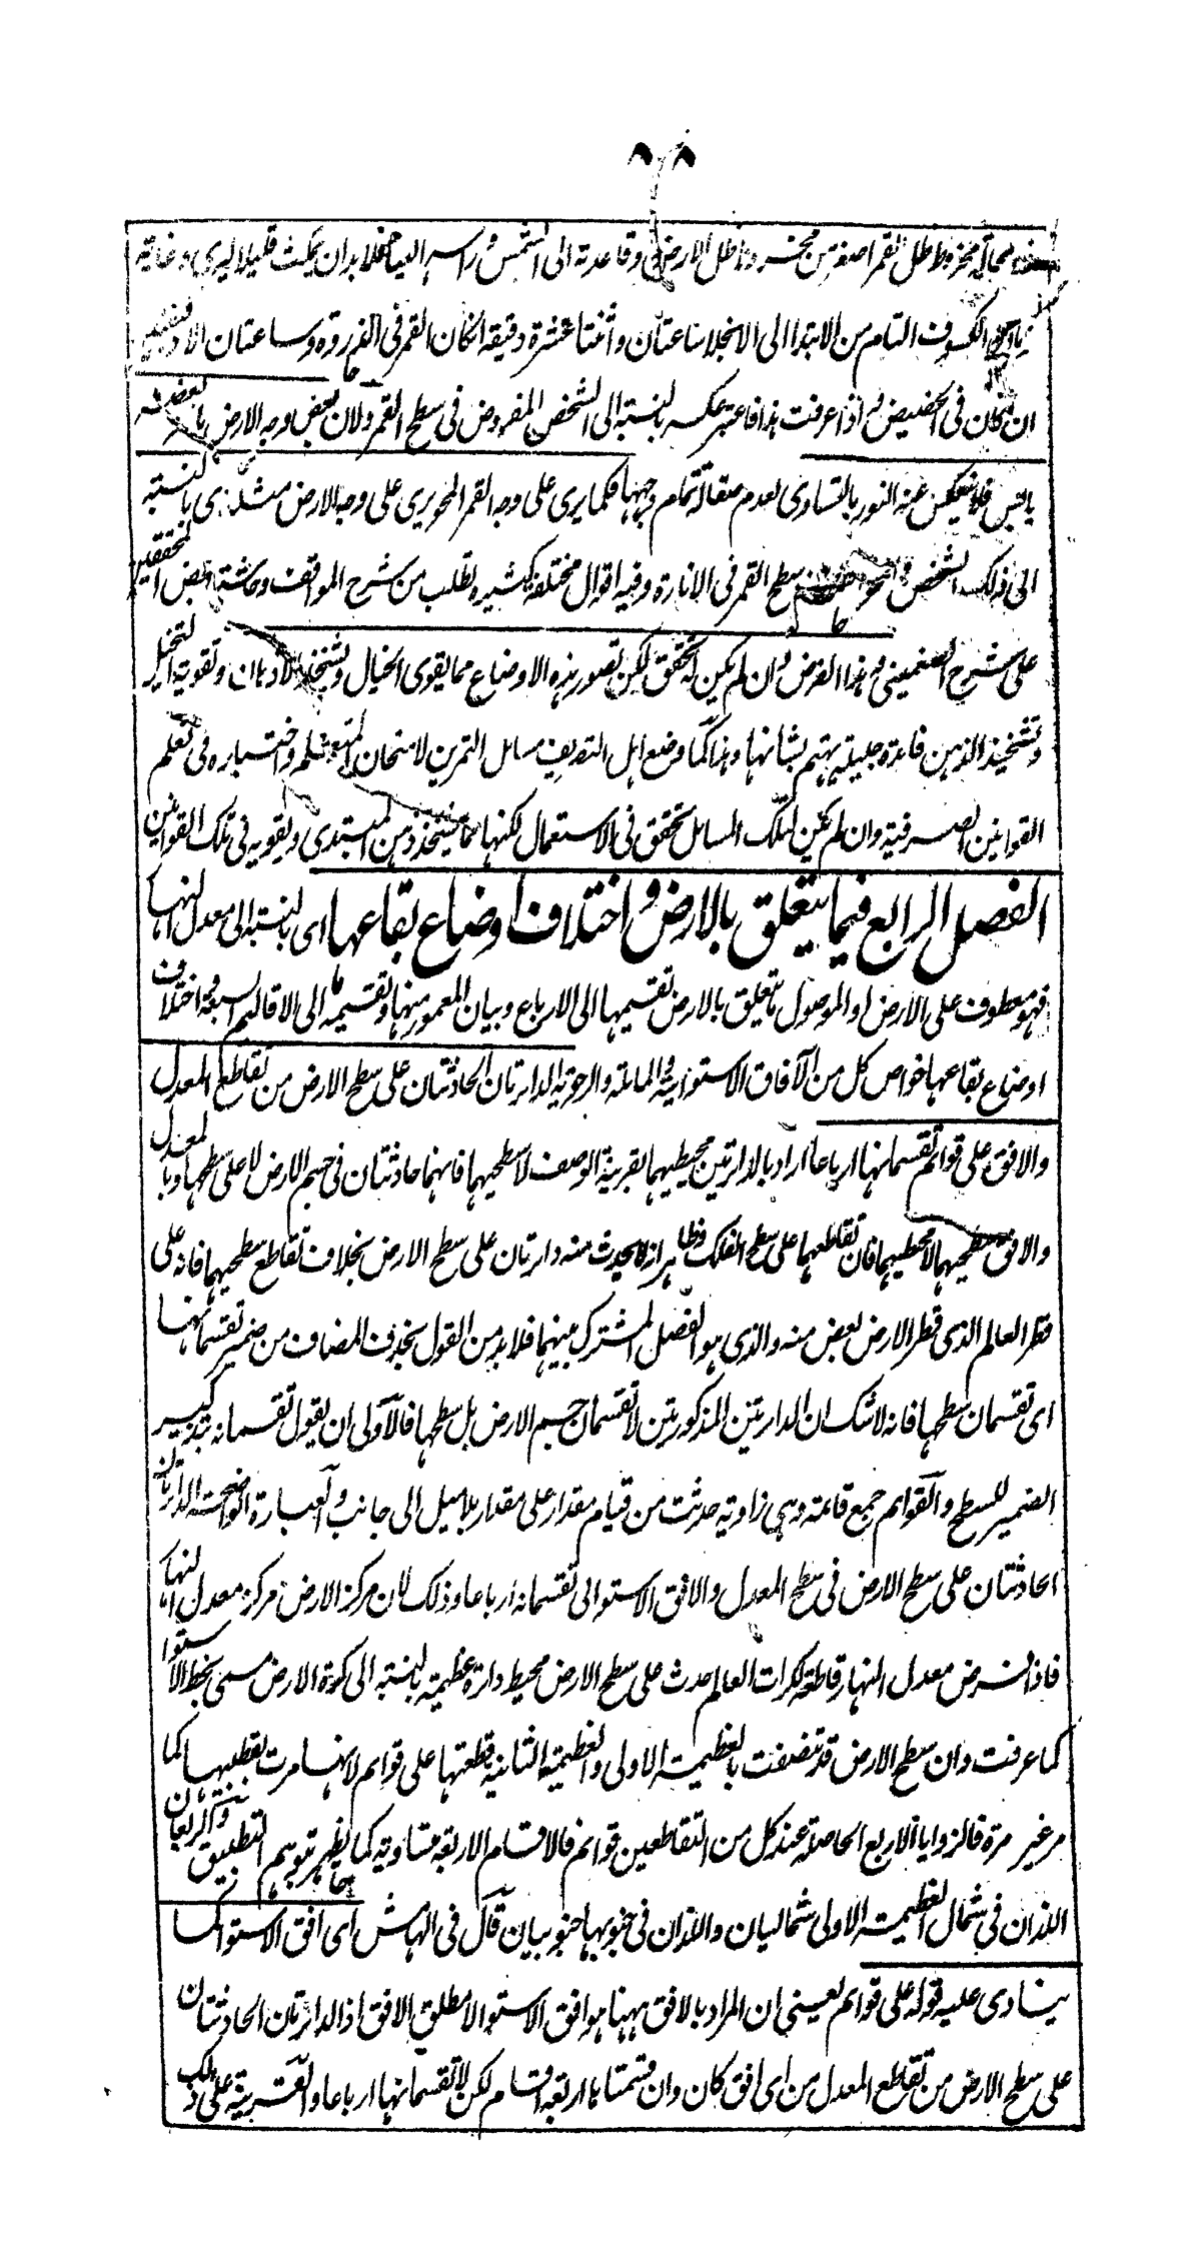 مخروط ظل القمر اصغر من مخروط ظل الارض وقاعدته الى الشمس وراسه الينا فلا بد ان يمكث قليلا ليرى وغاية
زمان الكسوف التام من الابتدا الى الانجلا ساعتان واثنتا عشرة دقيقة انكان القمر فى الذروة وساعتان الا دقيقتين
ان كان فى الحضيض واذا عرفت هذا فاعتبر عكسه بالنسبة الى الشخص المفروض فى سطح القمر ولان بعض وجه الارض يابس بعضه
باليبس فلا ينعكس عنه النور بالتساوى لعدم صقالة تمام وجهها فكما يرى على وجه القمر المحو يرى على وجه الارض مثله بالنسبة
الى ذلك الشخص والمحو سطح القمر فى الانارة وفيه اقوال مختلفة كثيرة تطلب من شرح المواقف وحاشية بعض المحققين
على شرح الچغمينى وهذا الفرض وان لم يكن له تحقق لكن تصور هذه الاوضاع مما يقوى الخيال ويشحذ الاذهان وتقوية التخيل
وتشحيذ الذهن فائدة جليلة يهتم بشانها وهذا كما وضع اهل التصريف مسائل التمرين لامتحان المتعلم واختباره فى تعلم
القوانين الصرفية وان لم يكن لتلك المسائل تحقق فى الاستعمال لكنها مما يشحذ ذهن المبتدى ويقويه فى تلك القوانين
الفصل الرابع فيما يتعلق بالارض واختلاف اوضاع بقاعها اى بالنسبة الى معدل النهار
فهو معطوف على الارض او الموصول ما يتعلق بالارض تقسيمها الى الارباع وبيان المعمور منها وتقسيمه الى الاقاليم السبعة واختلاف
اوضاع بقاعها خواص كل من الآفاق الاستوائية والمائلة والرحوية الدائرتان الحادثتان على سطح الارض من تقاطع المعدل
والافق على قوائم تقسمانها ارباعا اراد بالدائرتين محيطيهما بقرينة الوصف لا سطحيهما فانهما حادثتان فى جسم الارض لا على سطحها وبالمعدل
والافق سطحيهما لا محيطيهما فان تقاطعهما على سطح الفلك وظاهر انه لا يحدث منه دائرتان على سطح الارض بخلاف تقاطع سطحيهما فانه على
قطر العالم الذى قطر الارض بعض منه والذى هو الفصل المشترك بينهما فلا بد من القول بحذف المضاف من ضمير تقسمانها
اى تقسمان سطحها فانه لا شك ان الدائرتين المذكورتين لا تقسمان جسم الارض بل سطحها فالاولى ان يقول تقسمانه بتذكير
الضمير للسطح والقوائم جمع قائمة وهى زاوية حدثت من قيام مقدار على مقدار بلا ميل الى جانب والعبارة الواضحة الدائرتان
الحادثتان على سطح الارض فى سطح المعدل والافق الاستوائى تقسمانه ارباعا وذلك لان مركز الارض مركز معدل النهار
فاذا فرض معدل النهار قاطعا لكرات العالم حدث على سطح الارض محيط دائرة عظيمة بالنسبة الى كرة الارض مسمى بخط الاستوا
كما عرفت وان سطح الارض قد تنصفت بالعظيمة الاولى والعظيمة الثانية قطعتها على قوائم لانها مرت بقطبيها كما
مر غير مرة فالزوايا الاربع الحاصلة عند كل من التقاطعين قوائم فالاقسام الاربعة متساوية كما يظهر بتوهم التطبيق والربعان
اللذان فى شمال العظيمة الاولى شماليان واللذان فى جنوبها جنوبيان قال فى الهامش اى افق الاستوا كما
ينادى عليه قوله على قوائم يعنى ان المراد بالافق ههنا هو افق الاستوا لا مطلق الافق اذ الدائرتان الحادثتان
على سطح الارض من تقاطع المعدل من اى افق كان وان قسمتاها اربعة اقسام لكن لا تقسمانها ارباعا والقرينة على ذلك